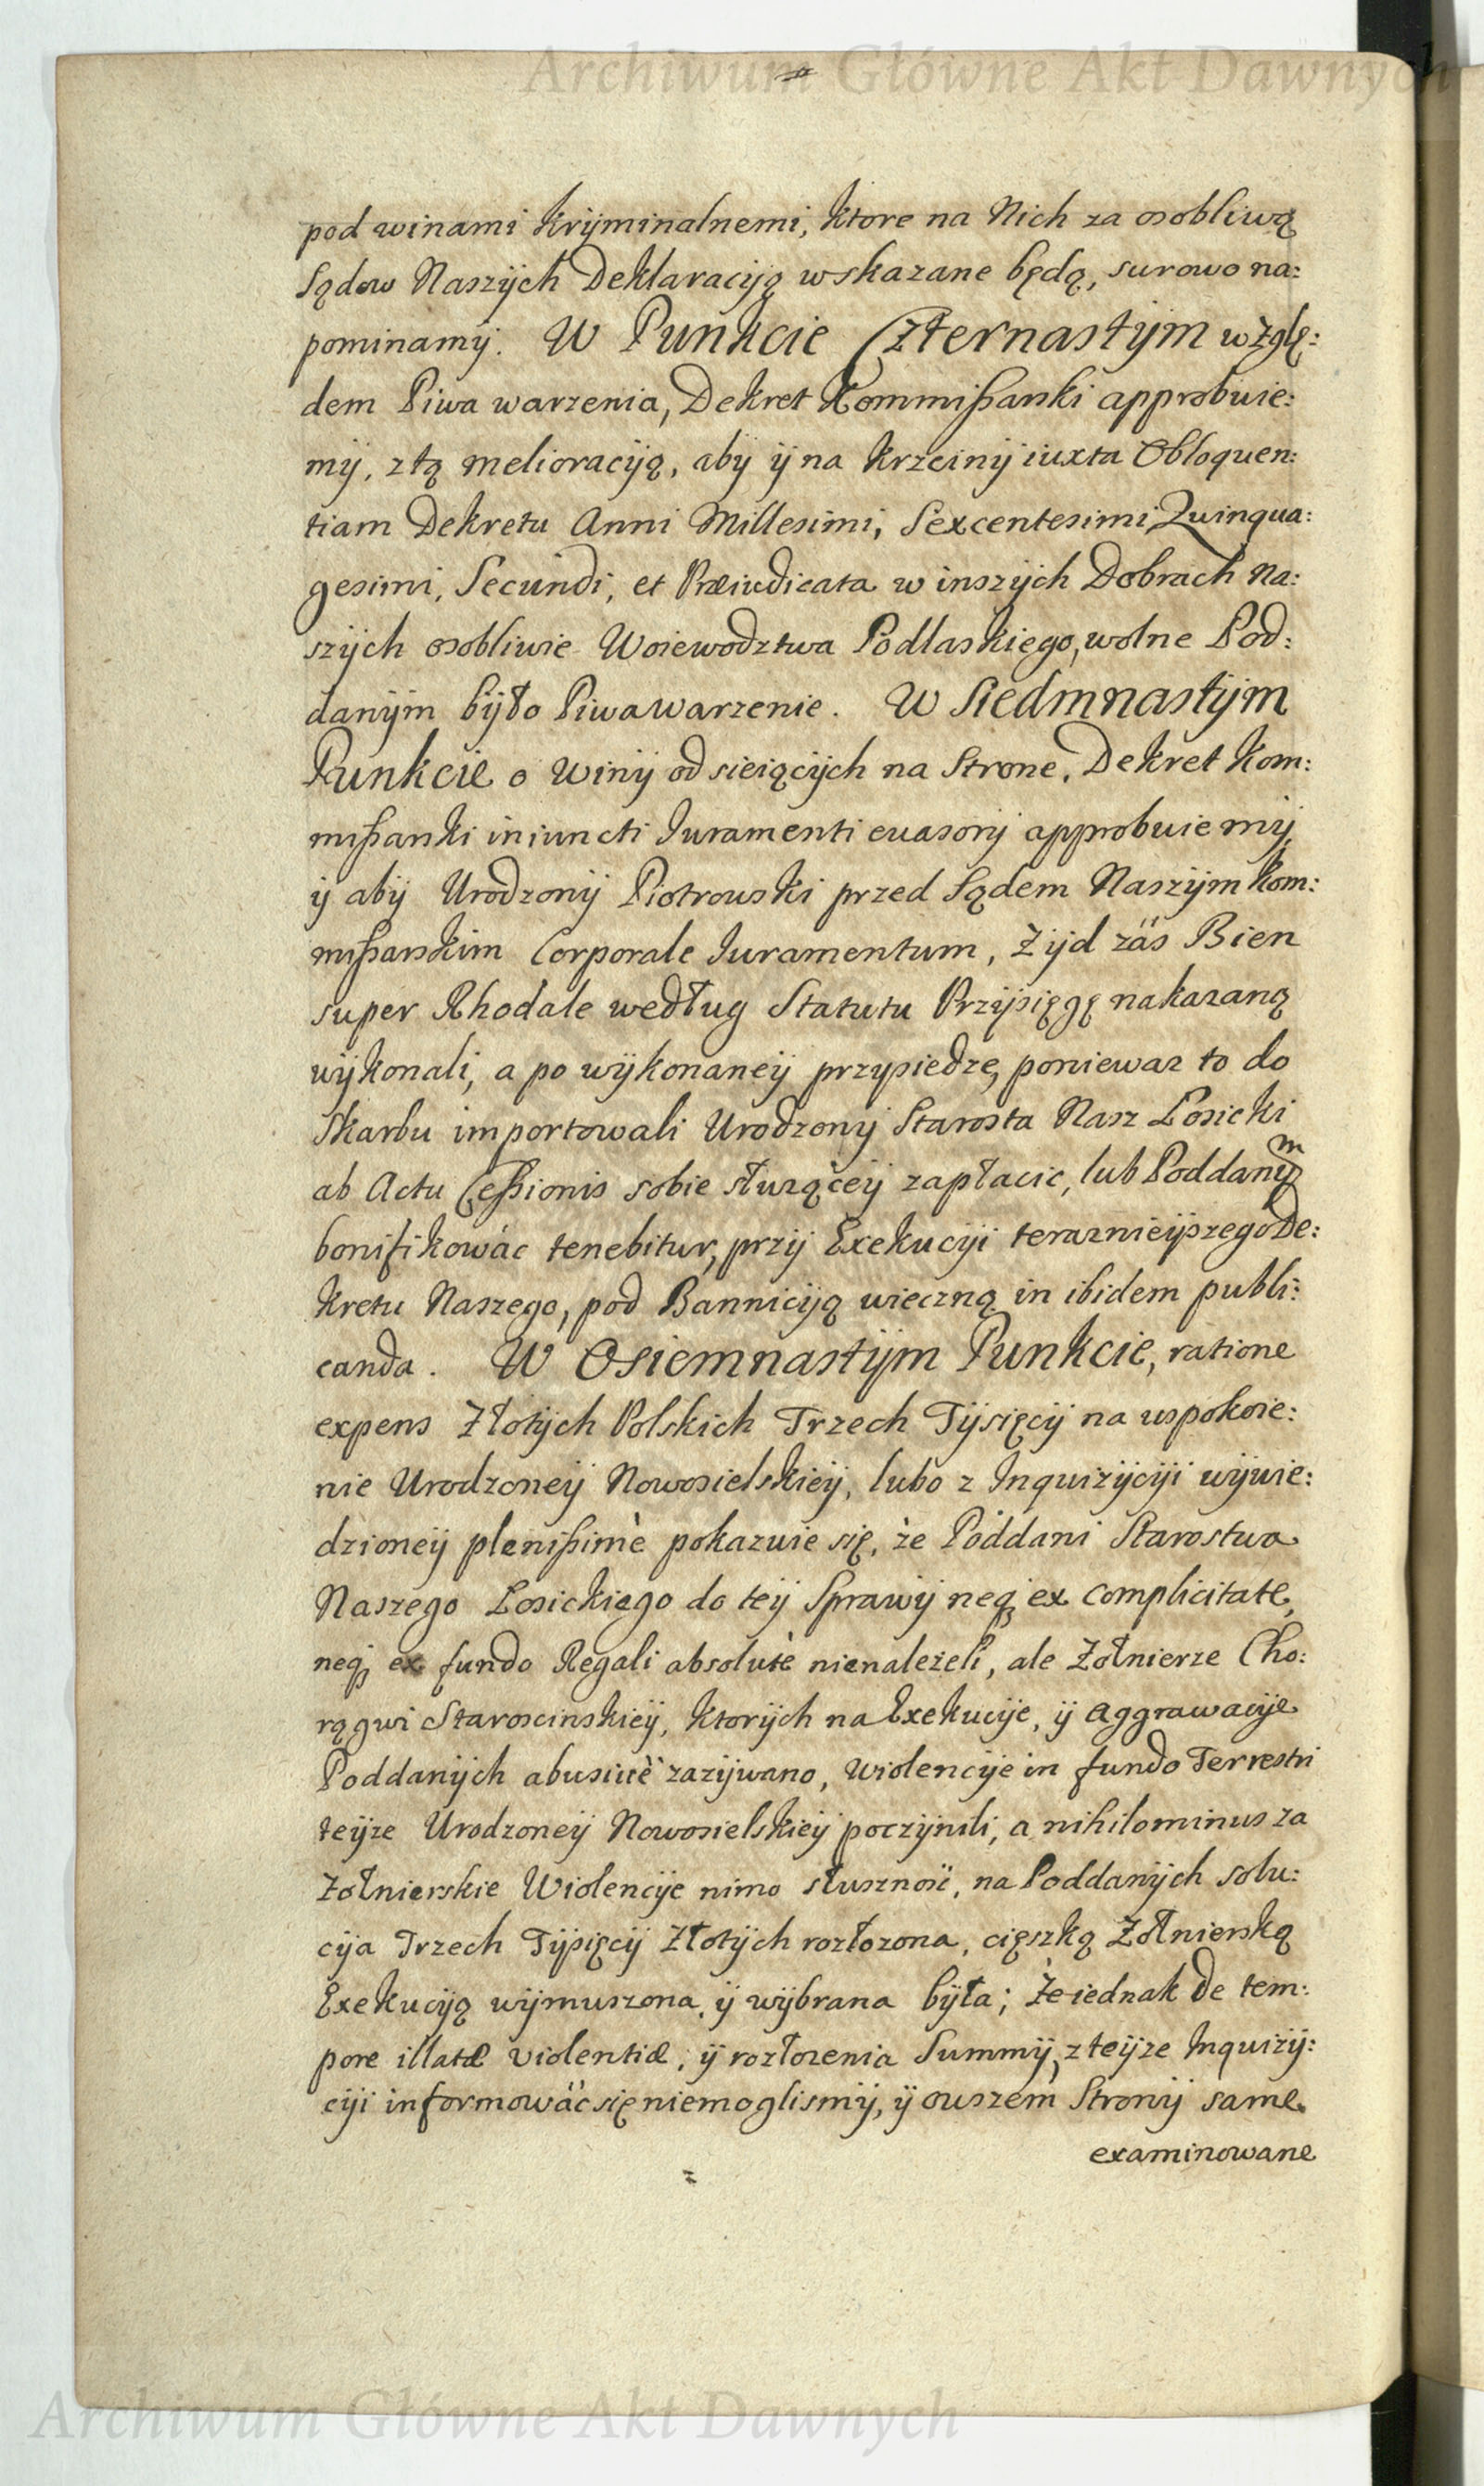 Archiwum Główne Akt Dawnych
pod winami kryminalnemi, ktore na Nich za osobliwą
Sądow Naszÿch Deklaracÿją wskazane będą, surowo na:
pominamÿ. W Punkcie Czternastÿm wzglę:
dem Piwa warzenia, Dekret Kommißarski approbuie:
mÿ, z tą melioracÿją, abÿ ÿ na krzcinÿ iuxta Obloquen:
tiam Dekretu Anni Millesimi, Sexcentesimi Quinqua:
gesimi, Secundi, et Præiudicata w inszÿch Dobrach Na:
szÿch osobliwie Woiewodztwa Podlaskiego, wolne Pod:
danÿm bÿło Piwa warzenie. W Siedmnastÿm
Punkcie o Winÿ od sieiącÿch na Strone, Dekret Kom:
mißarski iniuncti Iuramenti euasorÿ approbuiemÿ,
ÿ abÿ Urodzonÿ Piotrowski przed Sądem Naszÿm Kom:
mißarskim Corporale Iuramentum, Zÿd záś Bien
super Rhodale według Statutu Przÿsięgę nakazaną
wÿkonali, a po wÿkonaneÿ przysiedze, poniewaz to do
Skarbu importowali Urodzonÿ Starosta Nasz Łosicki
ab Actu Ceßionis sobie służąceÿ zapłacic, lub Poddanÿm
bonifikowác tenebitur, przÿ Exekucÿi teraznieÿszego De:
kretu Naszego, pod Bannicÿją wieczną in ibidem publi:
canda. W Osiemnastÿm Punkcie, ratione
expens Złotÿch Polskich Trzech Tÿsięcÿ na uspokoie:
nie Urodzoneÿ Nowosielskieÿ, lubo z Inquizÿcÿi wÿwie:
dzioneÿ plenißimè pokazuie się, że Poddani Starostwa
Naszego Łosickiego do teÿ Sprawÿ neq; ex complicitate,
neq; ex fundo Regali absolutè nienależeli, ale Żołnierze Cho:
rągwi Staroscinskieÿ, ktorÿch na Exekucÿje, ÿ Aggrawacÿje
Poddanÿch abusiuè zazÿwano, Wiolencÿje in fundo Terrestri
teÿze Urodzoneÿ Nowosielskieÿ poczÿnili, a nihilominus za
Żołnierskie Wiolencÿje nimo słusznosć, na Poddanÿch solu:
cÿja Trzech Tÿsięcÿ Złotÿch rozłozona, cięszką Żołnierską
Exekucÿją wÿmuszona, ÿ wÿbrana bÿła; Że iednak de tem:
pore illatæ violentiæ, ÿ rozłozenia Summÿ, z teÿze Inquizÿ:
cÿi informowác się niemoglismÿ, ÿ owszem Stronÿ same
examinowane
Archiwum Główne Akt Dawnych